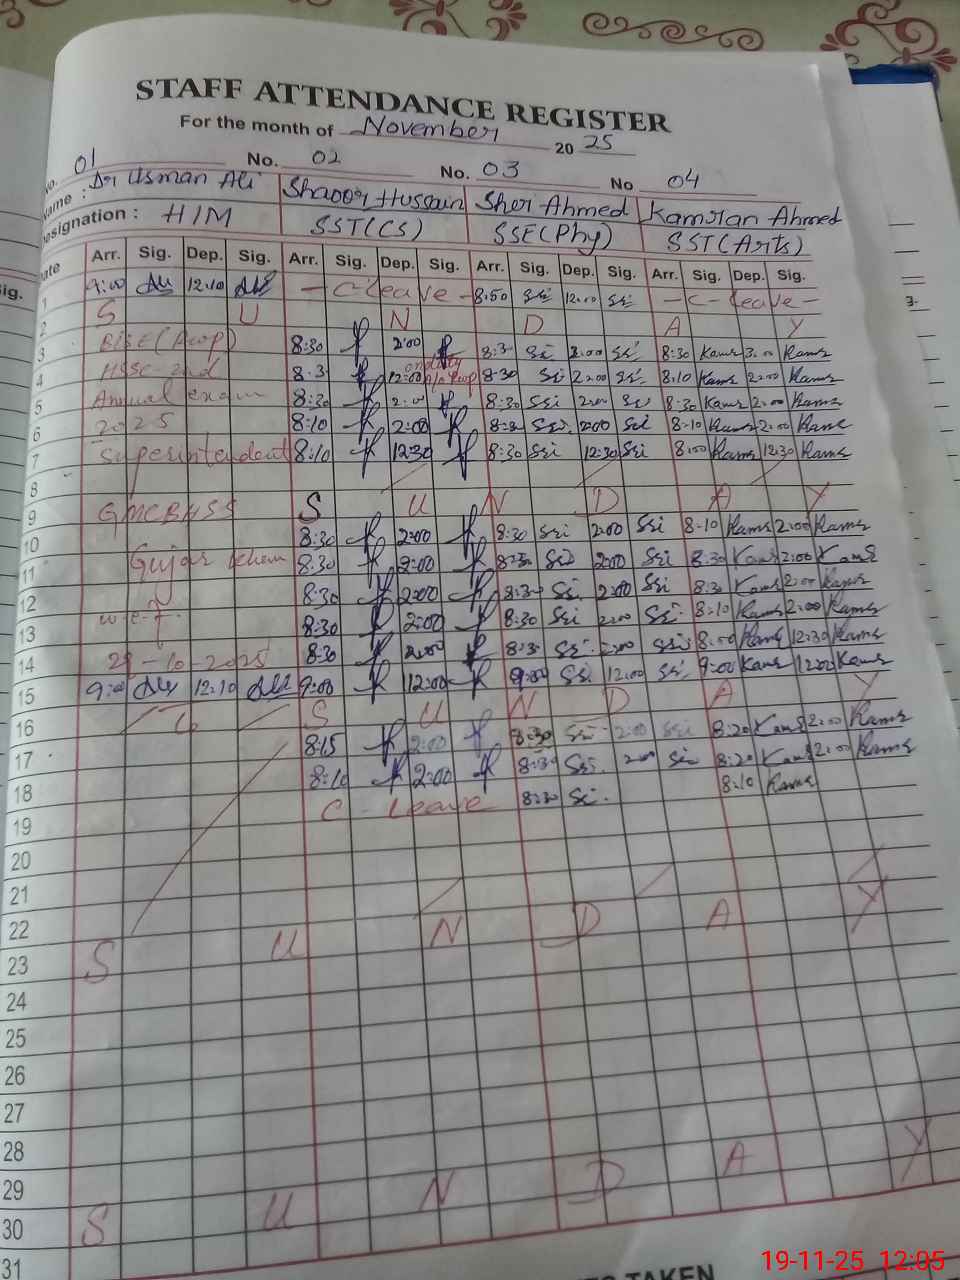 STAFF ATTENDANCE REGISTER
For the month of November 20 25
No. 01 No. 02 No. 03 No 04
Name : Dr Usman Ali Shaoor Hussain Sher Ahmed Kamran Ahmed
Designation : HIM SST(CS) SSE(Phy) SST(Arts)
Date Arr. Sig. Dep. Sig. Arr. Sig. Dep. Sig. Arr. Sig. Dep. Sig. Arr. Sig. Dep. Sig.
1 9:00 12:10 - C-leave - 8:50 Sri 12:00 Sri - C - leave -
2 S U N D A Y
3 BISE (Prop) 8:30 2:00 8:3 Sri 2:00 Sri 8:30 Kams 2:00 Kams
4 HSSC-2nd 8:3 12:00 on duty 8:30 Sri 2:00 Sri 8:10 Kams 2:00 Kams
5 Annual exam 8:30 2:0 8:30 Sri 2:00 Sri 8:30 Kams 2:00 Kams
6 2025 8:10 2:00 8:30 Sri 2:00 Sri 8:10 Kams 2:00 Kams
7 Superintendent 8:10 12:30 8:30 Sri 12:30 Sri 8:00 Kams 12:30 Kams
8
9 GMCBHSS S U N D A Y
10 8:30 2:00 8:30 Sri 2:00 Sri 8:10 Kams 2:00 Kams
11 Gujar 8:30 2:00 8:30 Sri 2:00 Sri 8:30 Kams 2:00 Kams
12 8:30 2:00 8:30 Sri 2:00 Sri 8:30 Kams 2:00 Kams
13 w.e.f. 8:30 2:00 8:30 Sri 2:00 Sri 8:10 Kams 2:00 Kams
14 29-10-2025 8:30 2:00 8:30 Sri 2:00 Sri 8:00 Kams 12:30 Kams
15 9:00 12:10 9:00 12:00 9:00 Sri 12:00 Sri 9:00 Kams 12:00 Kams
16 S U N D A Y
17 8:15 2:00 8:30 Sri 2:00 Sri 8:20 Kams 2:00 Kams
18 8:10 2:00 8:30 Sri 2:00 Sri 8:20 Kams 2:00 Kams
19 C - leave 8:30 Sri 8:10 Kams
20
21
22
23 S U N D A Y
24
25
26
27
28
29
30 S U N D A Y
31
TAKEN
19-11-25 12:05